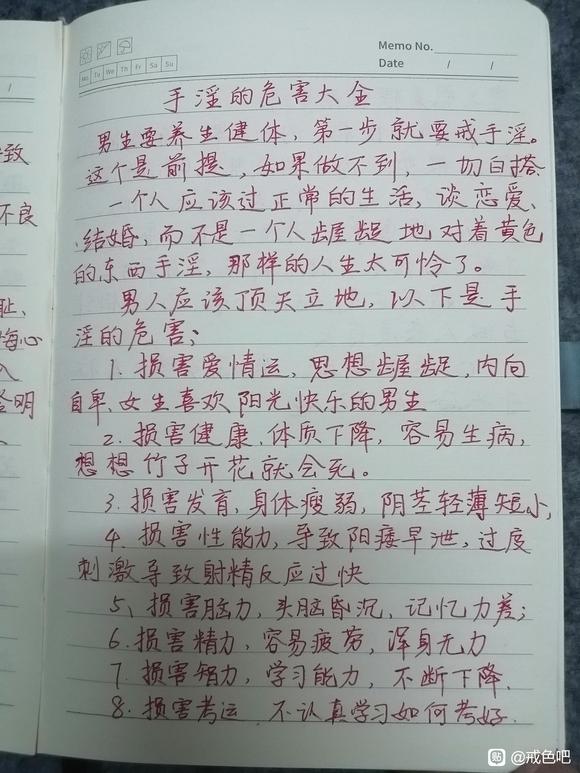 Memo No.
Mo Tu We Th Fr Sa Su
Date / /
手淫的危害大全
男生要养生健体，第一步就要戒手淫。
这个是前提，如果做不到，一切白搭
一个人应该过正常的生活，谈恋爱、
结婚，而不是一个人龌龊地对着黄色
的东西手淫，那样的人生太可怜了。
男人应该顶天立地，以下是手
淫的危害：
1. 损害爱情运，思想龌龊，内向
自卑、女生喜欢阳光快乐的男生
2. 损害健康、体质下降，容易生病，
想想竹子开花就会死。
3. 损害发育，身体瘦弱，阴茎轻薄短小，
4. 损害性能力，导致阳痿早泄，过度
刺激导致射精反应过快
5、损害脑力，头脑昏沉，记忆力差；
6. 损害精力，容易疲劳，浑身无力
7. 损害智力，学习能力，不断下降.
8. 损害考运 不认真学习如何考好.
致
不良
耻、
悔心
入
证明
贴 @戒色吧